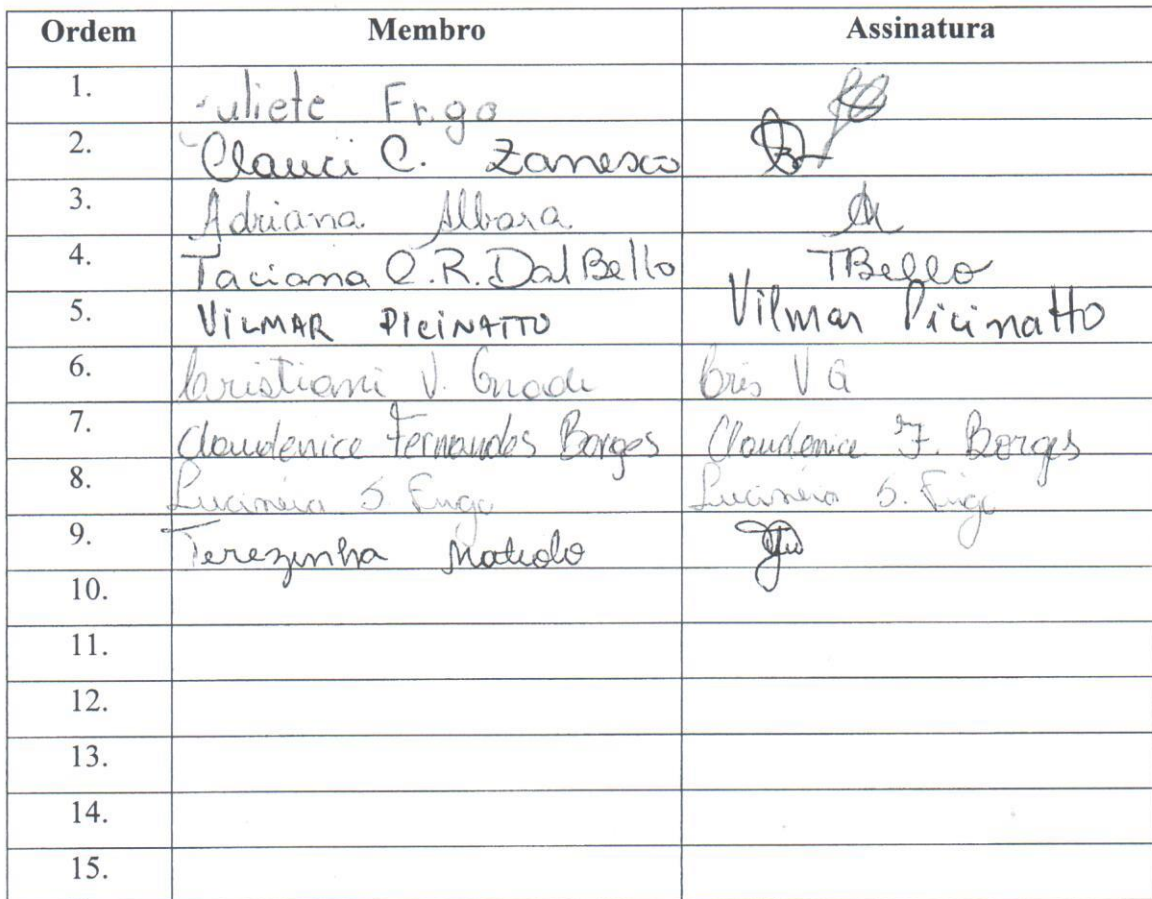 Ordem Membro Assinatura
1. Juliete Frigo
2. Clauci C. Zanesco
3. Adriana Albara
4. Taciana C.R. Dal Bello TBello
5. VILMAR PICINATTO Vilmar Picinatto
6. Cristiani V. Cris V G
7. Claudenice Fernandes Borges Claudenice F. Borges
8. Lucineia S. Lucineia S.
9. Terezinha
10.
11.
12.
13.
14.
15.